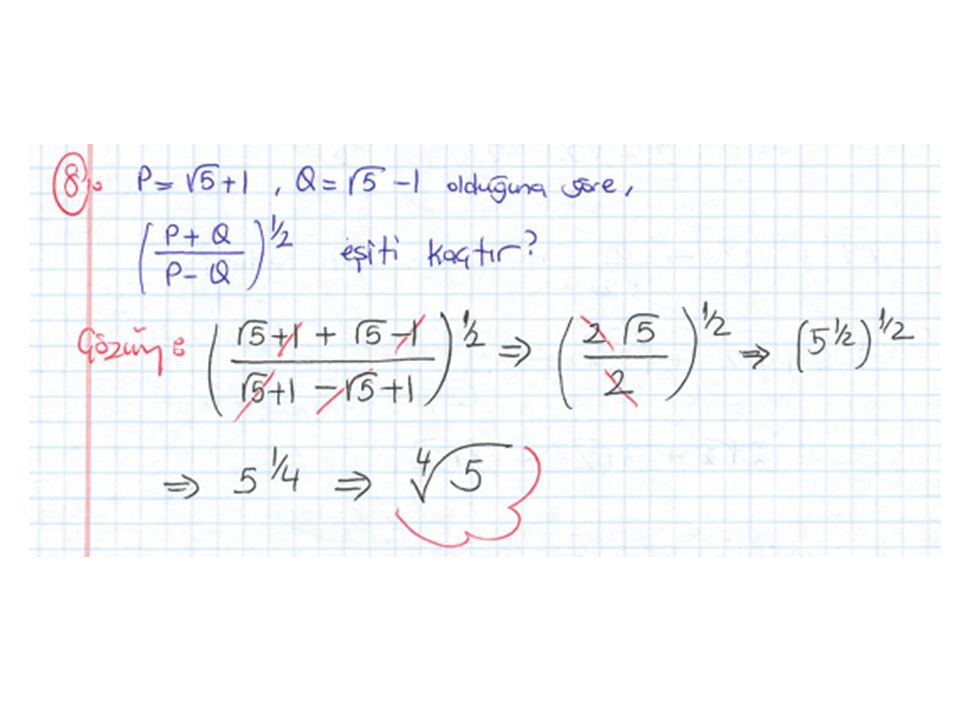 8. P = √5+1 , Q = √5 -1 olduğuna göre,
(P+Q / P-Q)^1/2 eşiti kaçtır?
Çözüm: (√5+1 + √5-1 / √5+1 -√5+1)^1/2 ⇒ (2√5 / 2)^1/2 ⇒ (5^1/2)^1/2
⇒ 5^1/4 ⇒ ⁴√5